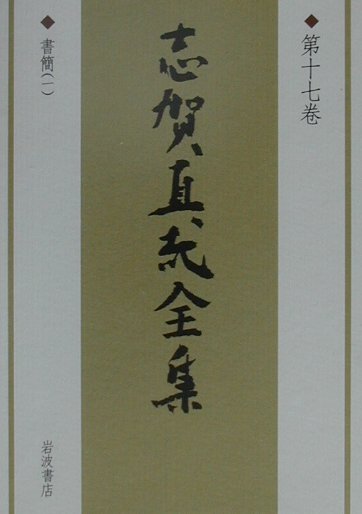 第十七巻
志賀直哉全集
書簡(一)
岩波書店